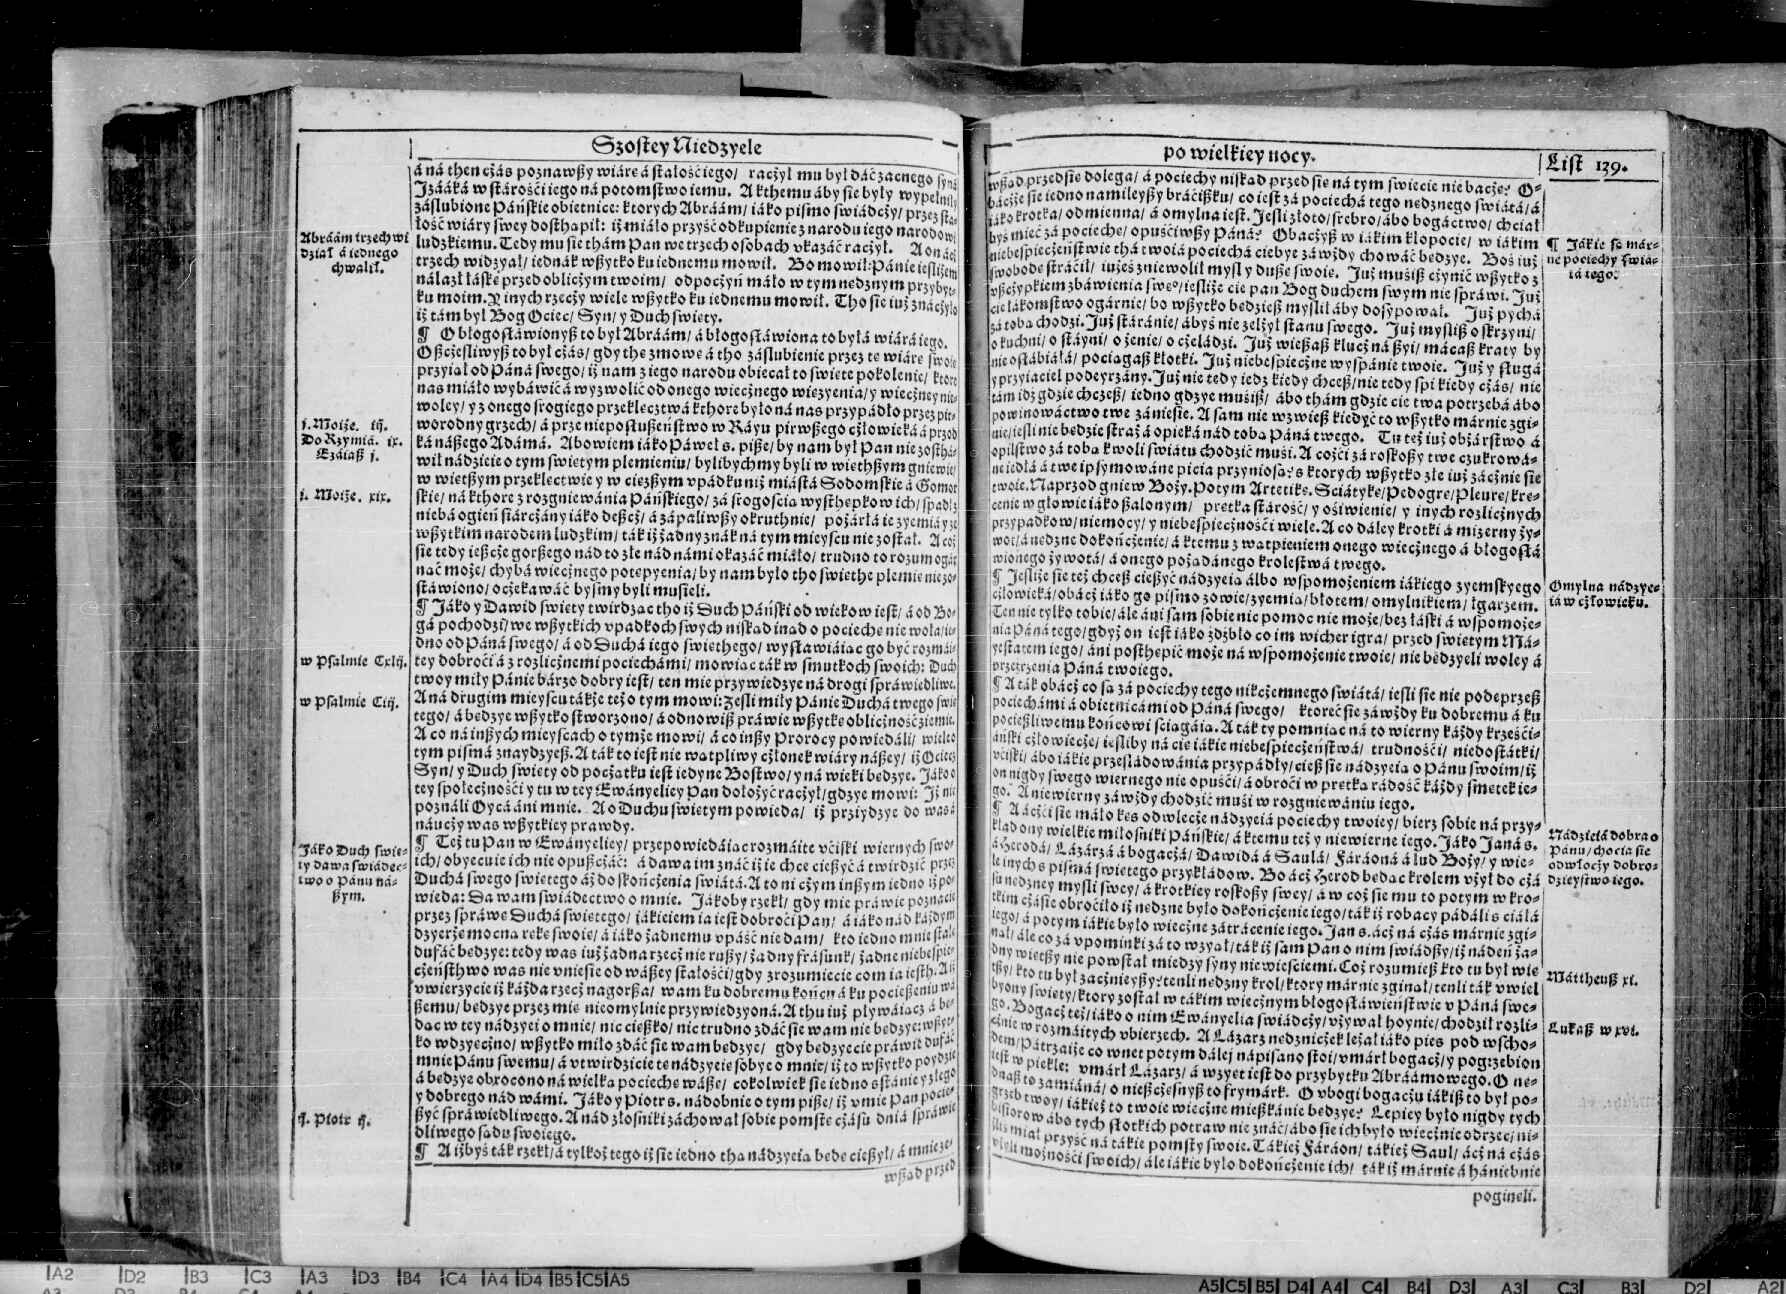 Szostey Niedzyele
á ná then cżás poznawßy wiáre á stáłość iego/ racżył mu był dáć zacnego syná
Izááká w stárości iego ná potomstwo iemu. A kthemu áby sie były wypełniły
záslubione Páńskie obietnice: ktorych Abráám/ iáko pismo swiádcży/ przez stá-
łość wiáry swey dosthąpił: iż miáło przyść odkupienie z narodu iego narodowi
ludzkiemu. Tedy mu sie thám Pan we trzech osobach vkazáć racżył. A on ácż
trzech widzyał/ iednák wßytko ku iednemu mowił. Bo mowił: Pánie iesliżem
nálazł łáskę przed oblicżym twoim/ odpocżyń máło w tym nędznym przyby-
ku moim. Y inych rzecży wiele wßytko ku iednemu mowił. Tho sie iuż znácżyło
iż tám był Bog Ociec/ Syn/ y Duch swięty.
¶ O błogosłáwionyß to był Abráám/ á błogosłáwiona to byłá wiárá iego.
Oßcżesliwyß to był cżás/ gdy the zmowe á tho záslubienie przez te wiáre swoię
przyiął od Páná swego/ iż nam z iego narodu obiecał to swięte pokolenie/ ktore
nas miáło wybáwić á wyzwolić od onego wiecżnego więzyenia/ y wiecżney nie-
woley/ y z onego srogiego przeklęcztwá kthore było ná nas przypádło przez pir-
worodny grzech/ á przez nieposłußeństwo w Ráyu pirwßego cżłowieká á przod
ká náßego Adámá. Abowiem iáko Páweł s. piße/ by nam był Pan nie zosthá-
wił nádzieie o tym swiętym plemieniu/ bylibychmy byli w więthßym gniewie/
w więtßym przeklęctwie y w cięzßym vpadku niż miástá Sodomskie á Gomor
skie/ ná kthore z rozgniewánia Páńskiego/ zá srogoscią wysthępkow ich/ spadł z
niebá ogień siárcżány iáko deßcż/ á zápaliwßy okruthnie/ pożárł ie z yemią y ze
wßytkim narodem ludzkim/ ták iż żadny znák ná tym mieyscu nie został. A coż
sie tedy ießcże gorßego nád to złe nád námi okázáć miáło/ trudno to rozum ogár
náć może/ chybá wiecżnego potępyenia/ by nam było tho swięthe plemię nie zo-
stáwiono/ ocżekawáć bysmy byli musieli.
¶ Jáko y Dawid swięty twirdząc tho iż Duch Páński od wiekow iest/ á od Bo-
gá pochodzi/ we wßytkich vpadkoch swych niskąd inąd o pociechę nie woła/ ie-
dno od Páná swego/ á od Duchá iego swięthego/ wysłáwiáiąc go być rozmái-
tey dobroci á z rozlicżnemi pociechámi/ mowiąc ták w smutkoch swoich: Duch
twoy miły Pánie bárzo dobry iest/ ten mię przywiedzye ná drogi spráwiedliwe.
A ná drugim mieyscu tákże też o tym mowi: Zesli miły Pánie Duchá twego swię
tego/ á będzye wßytko stworzono/ á odnowiß práwie wßytkę oblicżność ziemie.
A co ná inßych mieyscach o tymże mowi/ á co inßy Prorocy powiedáli/ wielko
tym pismá znaydzyeß. A ták to iest nie wątpliwy cżłonek wiáry náßey/ iż Ociec
Syn/ y Duch swięty od pocżątku iest iedyne Bostwo/ y ná wieki będzye. Jáko o
tey społecżności y tu w tey Ewányeliey Pan dołożyć racżył/ gdzye mowi: Iż nie
poználi Oycá áni mnie. A o Duchu swiętym powieda/ iż przyidzye do was á
náucży was wßytkiey prawdy.
¶ Też tu Pan w Ewányeliey/ przepowiedáiąc rozmáite vciski wiernych swo-
ich/ obyecuie ich nie opußcżáć: á dawa im znáć iż ie chce cießyć á twirdzić przez
Duchá swego swiętego áż do skońcżenia swiátá. A to ni cżym inßym iedno iż po-
wieda: Da wam swiádectwo o mnie. Jákoby rzekł/ gdy mię práwie poznacie
przez spráwę Duchá swiętego/ iákiem ia iest dobroci Pan/ á iáko nád káżdym
dzyerżę mocną rękę swoię/ á iáko żadnemu vpáść nie dam/ kto iedno mnie stale
dufáć będzye: tedy was iuż żadna rzecż nie rußy/ żadny frásunk/ żadne niebespie-
cżeństhwo was nie vniesie od wáßey stáłości/ gdy zrozumiecie com ia iesth. A iż
vwierzycie iż káżda rzecż nagorßa/ wam ku dobremu końcu á ku pocießeniu wá
ßemu/ będzye przez mię nieomylnie przywiedzyoná. A thu iuż pływáiącż á bę-
dąc w tey nádzyei o mnie/ nic cießko/ nic trudno zdáć sie wam nie będzye: wßyt-
ko wdzyecżno/ wßytko miło zdáć sie wam będzye/ gdy będzyecie práwie dufáć
mnie Pánu swemu/ á vtwirdzicie tę nádzyeię sobye o mnie/ iż to wßytko poydzie
á będzye obrocono ná wielką pociechę wáßę/ cokolwiek sie iedno sstánie y złego
y dobrego nád wámi. Jáko y Piotr s. nádobnie o tym piße/ iż vmie Pan pocie-
ßyć spráwiedliwego. A nád złośniki záchował sobie pomstę cżásu dniá spráwie
dliwego sądu swoiego.
¶ A iżbyś ták rzekł/ á tylkoż tego iż sie iedno thą nádzyeią będę cießył/ á mnie ze-
wßąd przed
Abráám trzech wi
dział á iednego
chwalił.
j. Moiże. iij.
Do Rzymiá. ix.
Ezáiaß j.
j. Moiże. xix.
w Psalmie Cxlij.
w Psalmie Ciij.
Jáko Duch swię-
ty dawa swiádec-
two o Pánu ná-
ßym.
ij. Piotr ij.
po wielkiey nocy.
List 139.
wßąd przedsię dolega/ á pociechy niskąd przed się ná tym swiecie nie bacżę? O-
bacżże sie iedno namileyßy brácißku/ co iest zá pociechá tego nędznego swiátá/ á
iáko krotka/ odmienna/ á omylna iest. Jesli złoto/ srebro/ ábo bogáctwo/ chciał
byś mieć zá pociechę/ opuściwßy Páná? Obacżyß w iákim kłopocie/ w iákim
niebespiecżeństwie thá twoiá pociechá ciebye záwżdy chowáć będzye. Boś iuż
swobodę stráćił/ iużeś zniewolił mysl y dußę swoię. Już musiß cżynić wßytko z
vßcżypkiem zbáwienia swego/ iesliże cię pan Bog duchem swym nie spráwi. Już
cię łákomstwo ogárnie/ bo wßytko będzieß myslił áby dosypował. Już pychá
zá tobą chodzi. Już stáránie/ ábyś nie zelżył stanu swego. Już mysliß o skrzyni/
o kuchni/ o stáyni/ o żenie/ o cżeládzi. Już wießaß klucż ná ßyi/ mácaß kraty by
nie osłábiáłá/ pociągaß kłotki. Już niebespiecżne wyspánie twoie. Już y sługá
y przyiaciel podeyrzány. Już nie tedy iedz kiedy chceß/ nie tedy spi kiedy cżás/ nie
tám idz gdzie chcżeß/ iedno gdzye musiß/ ábo thám gdzie cię twa potrzebá ábo
powinowáctwo twe zániesie. A sam nie wzwieß kiedyć to wßytko márnie zgi-
nie/ iesli nie będzie straż á opieká nád tobą Páná twego. Tu też iuż obżárstwo á
opilstwo zá tobą kwoli swiátu chodzić musi. A cożci zá roskoßy twe cżukrowá-
ne iedłá á twe ipsymowáne picia przyniosą? s ktorych wßytko złe iuż zácżnie sie
twoie. Naprzod gniew Boży. Potym Artetikę. Sciátykę/ Pedogrę/ Pleurę/ krę-
cenie w głowie iáko ßalonym/ prętka stárość/ y ośiwienie/ y inych rozlicżnych
przypadkow/ niemocy/ y niebespiecżności wiele. A co dáley krotki á mizerny ży-
wot/ á nędzne dokońcżenie/ á ktemu z wątpieniem onego wiecżnego á błogosłá
wionego żywotá/ á onego pożądánego krolestwá twego.
¶ Jesliże sie też chceß cießyć nádzyeią álbo wspomożeniem iákiego zyemskyego
cżłowieká/ obácż iáko go pismo zowie/ zyemią/ błotem/ omylnikiem/ łgarzem.
Ten nie tylko tobie/ ále áni sam sobie nic pomoc nie może/ bez łáski á wspomoże-
nia Páná tego/ gdyż on iest iáko źdźbło co im wicher igra/ przed swiętym Má-
yestatem iego/ áni posthępić może ná wspomożenie twoie/ nie będzyeli woley á
przezrzenia Páná twoiego.
¶ A ták obácż co są zá pociechy tego nikcżemnego swiátá/ iesli sie nie podeprzeß
pociechámi á obietnicámi od Páná swego/ ktoreć sie záwżdy ku dobremu á ku
pocießliwemu końcowi ściągáią. A ták ty pomniąc ná to wierny káżdy krześći-
áński cżłowiecże/ iesliby ná cię iákie niebespiecżeństwá/ trudności/ niedostátki/
vciski/ ábo iákie prześládowánia przypádły/ cieß sie nádzyeią o Pánu swoim/ iż
on nigdy swego wiernego nie opuści/ á obroci w prętką rádość káżdy smętek ie-
go. A niewierny záwżdy chodzić musi w rozgniewániu iego.
¶ A ácżci sie máło kęs odwlecże nádzyeiá pociechy twoiey/ bierz sobie ná przy-
kład ony wielkie miłosniki Páńskie/ á ktemu też y niewierne iego. Jáko Janá s.
á Herodá/ Lázárzá á bogacżá/ Dawidá á Saulá/ Fáráoná á lud Boży/ y wie-
le inych s pismá swiętego przykłádow. Bo ácż Herod będąc krolem vżył do cżá
su nędzney mysli swey/ á krotkiey roskoßy swey/ á w coż sie mu to potym w kro-
tkim cżásie obrociło iż nędzne było dokońcżenie iego/ ták iż robacy pádáli s ciáłá
iego/ á potym iákie było wiecżne zátrácenie iego. Jan s. ácż ná cżás márnie zgi-
nął/ ále co zá vpominki zá to wzyął/ ták iż sam Pan o nim swiádßy/ iż nádeń ża-
dny więtßy nie powstał miedzy syny niewieściemi. Coż rozumieß kto tu był wię
tßy/ kto tu był zacżnieyßy? tenli nędzny krol/ ktory márnie zginął/ tenli ták vwiel
byony swięty/ ktory został w tákim wiecżnym błogosłáwieństwie v Páná swe-
go. Bogacż też/ iáko o nim Ewányelia swiádcży/ vżywał hoynie/ chodził rozli-
cżnie w rozmáitych vbierzech. A Lázarz nędznicżek leżał iáko pies pod wscho-
dem/ Pátrzaiże co wnet potym dálej nápisano stoi/ vmárł bogacż/ y pogrzebion
iest w piekle: vmárł Lázarz/ á wzyęt iest do przybytku Abráámowego. O nę-
dnaß to zamiáná/ o nießcżęsnyß to frymárk. O vbogi bogacżu iákiß to był po-
grzeb twoy/ iákież to twoie wiecżne mießkánie będzye? Lepiey było nigdy tych
bisiorow ábo tych słotkich potraw nie znáć/ ábo sie ich było wiecżnie odrzec/ ni-
żliś miał przyść ná tákie pomsty swoie. Tákież Fáráon/ tákież Saul/ ácż ná cżás
vżyli możności swoich/ ále iákie było dokońcżenie ich/ ták iż márnie á hániebnie
poginęli.
¶ Jákie są már-
ne pociechy swiá-
tá tego.
Omylna nádzye-
iá w cżłowieku.
Nádzieiá dobra o
Pánu/ chocia sie
odwłocży dobro-
dzieystwo iego.
Máttheuß xi.
Lukaß w xvi.
A2 D2 B3 C3 A3 D3 B4 C4 A4 D4 B5 C5 A5
A5 C5 B5 D4 A4 C4 B4 D3 A3 C3 B3 D2 A2